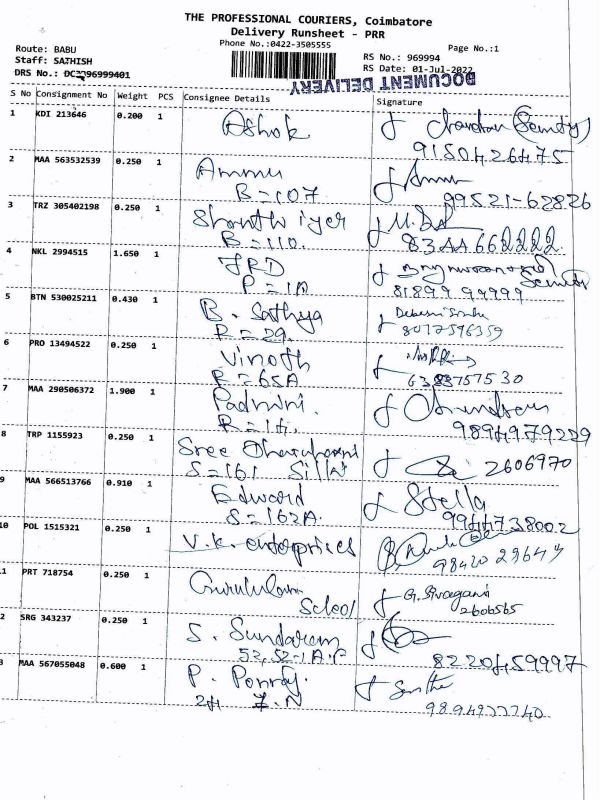 THE PROFESSIONAL COURIERS, Coimbatore
Delivery Runsheet - PRR
Phone No.:0422-3505555
Page No.:1
Route: BABU
Staff: SATHISH
DRS No.: 96999401
RS No.: 969994
RS Date: 01-Jul-2022
DOCUMENT DELIVERY
S No Consignment No Weight PCS Consignee Details Signature
1 KDI 213646 0.200 1 Ashok
9150426475
2 MAA 563532539 0.250 1 Ammu
B=107 99521-62826
3 TRZ 305402198 0.250 1 Shanthi iyer
B=110. 8344662222
4 NKL 2994515 1.650 1 JRD
P=1A 81899 99999
5 BTN 530025211 0.430 1 B. Sathya
R=29. 8017596359
6 PRO 13494522 0.250 1 Vinoth
R=65A 6383757530
7 MAA 290506372 1.900 1 Padmini.
R=14. 9894979229
8 TRP 1155923 0.250 1 Sree
S=161 2606970
9 MAA 566513766 0.910 1 Edward Stella
S=162A. 9944738002
10 POL 1515321 0.250 1 V.K. enterprises
98420 29644
11 PRT 718754 0.250 1 Gurukulam G. Sivagami
School 2606565
12 SRG 343237 0.250 1 S. Sundaram
8220459997
13 MAA 567055048 0.600 1 P.